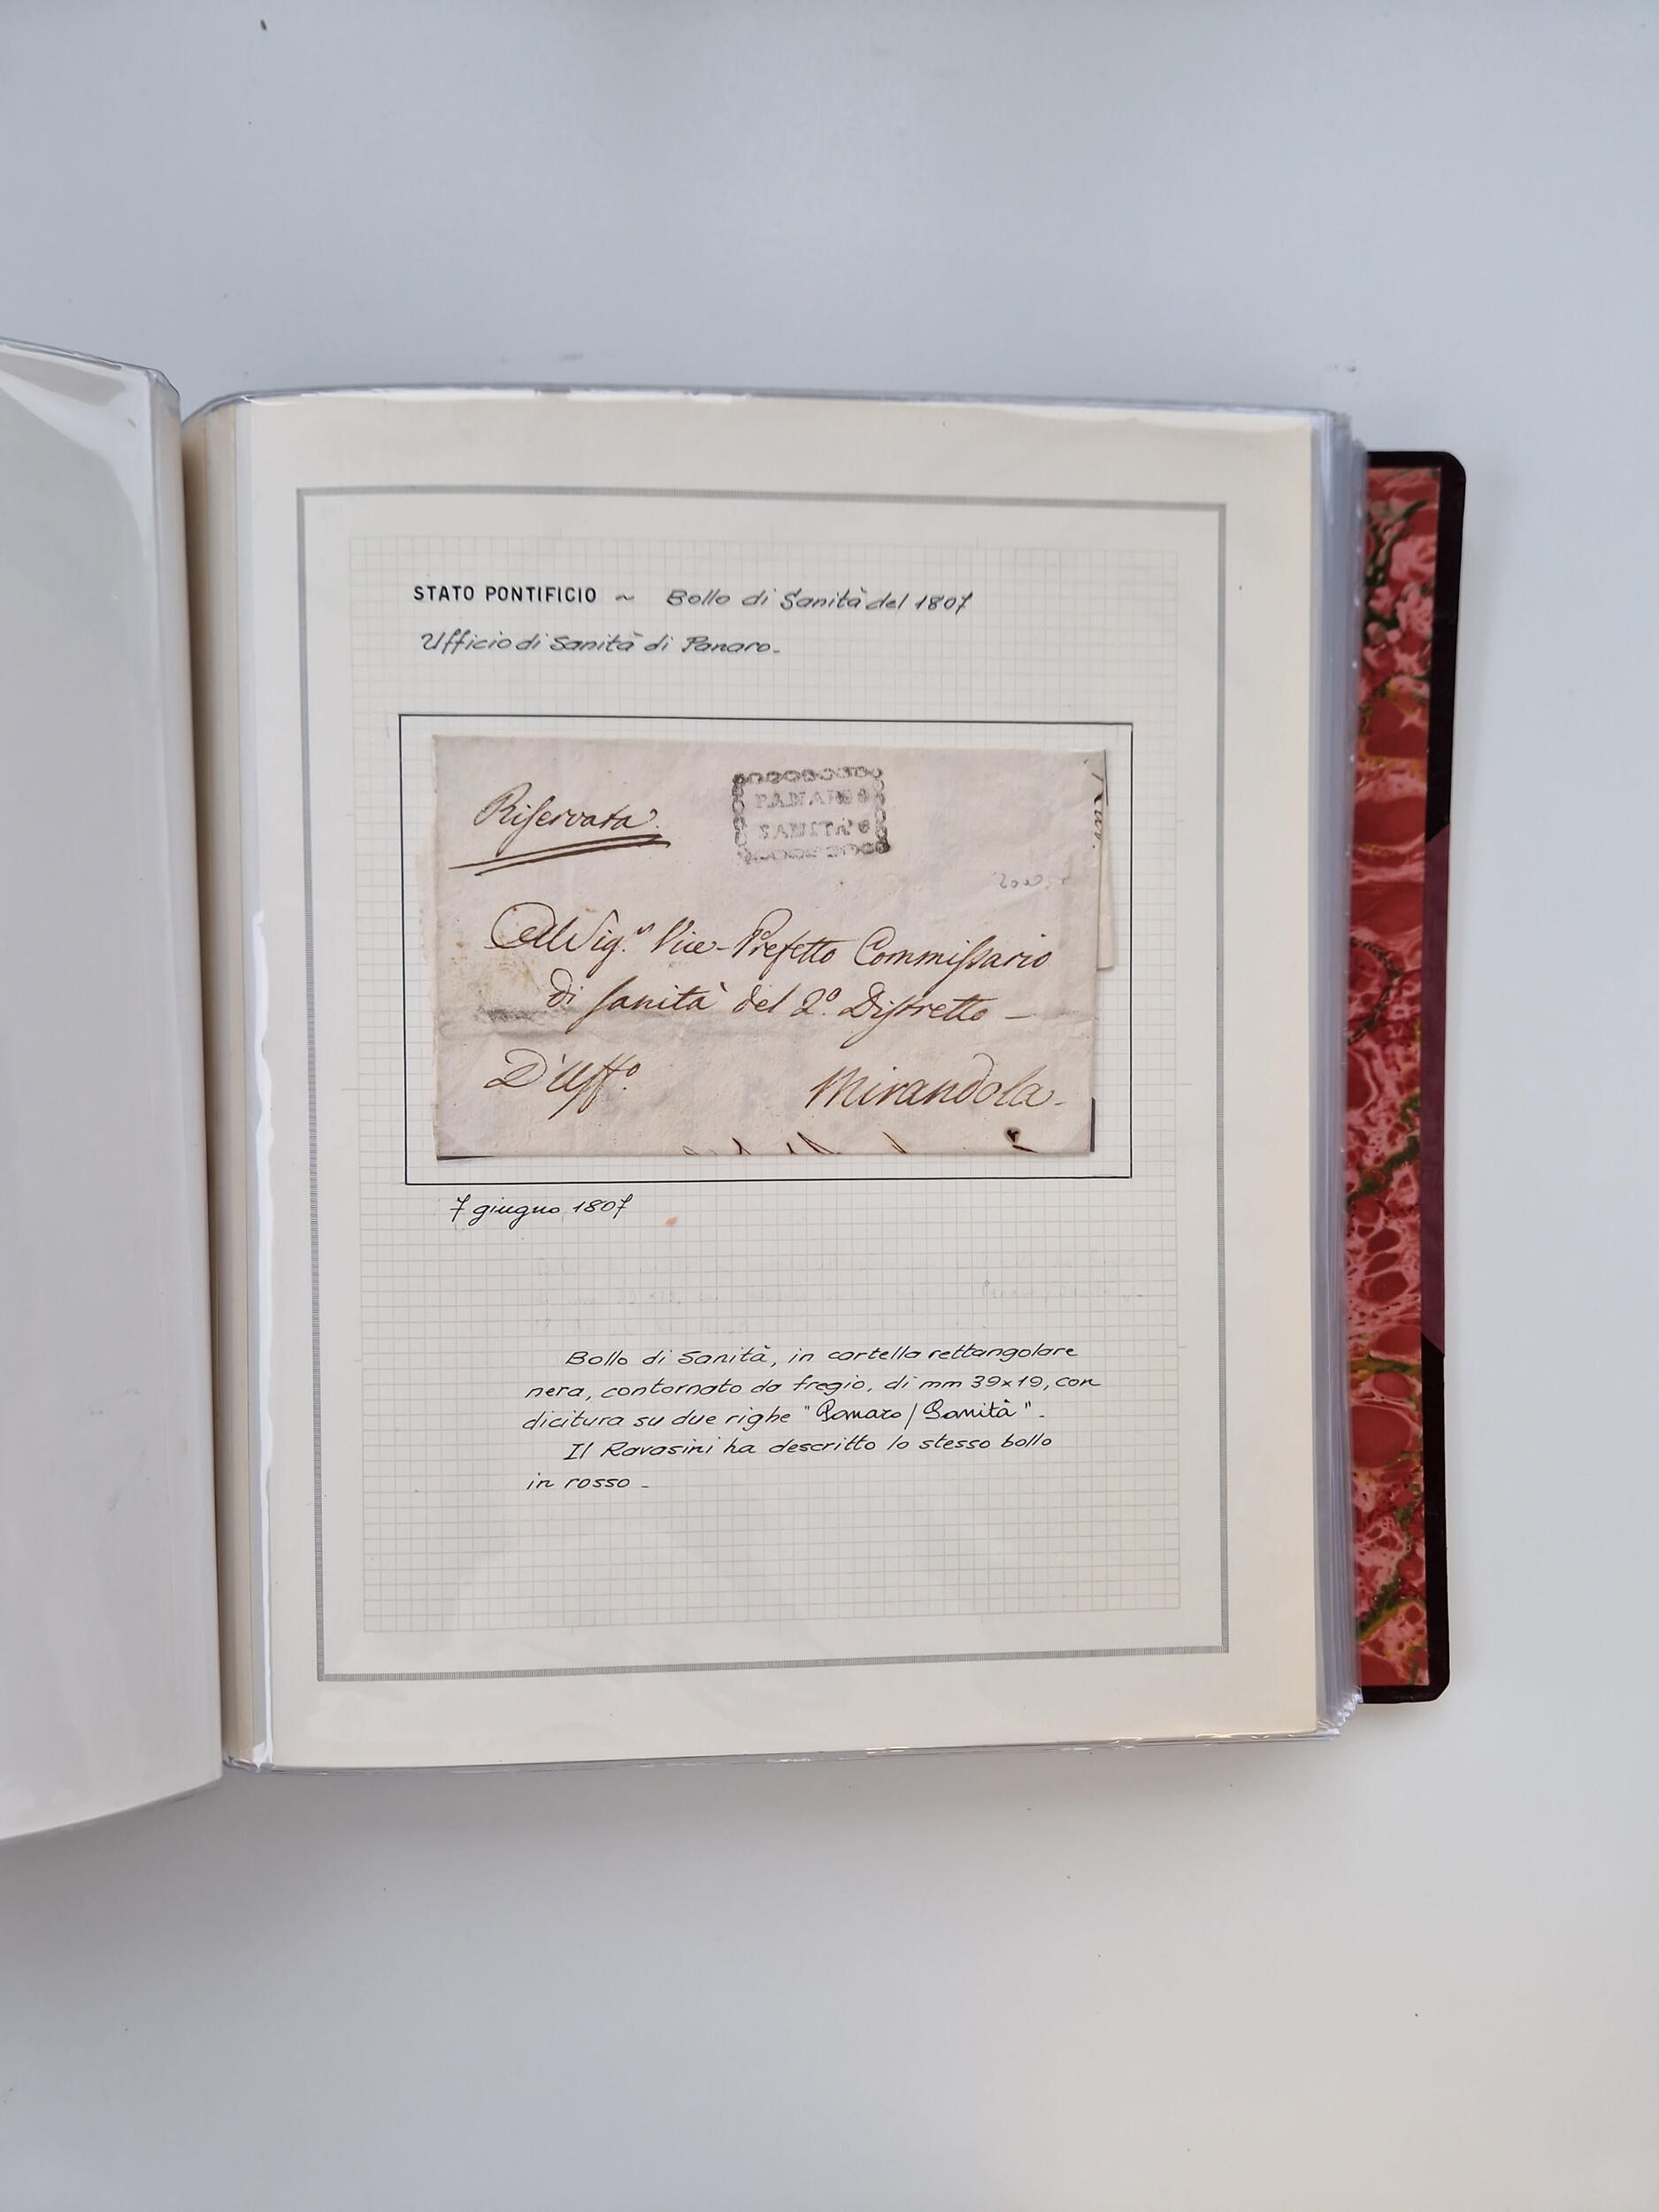 STATO PONTIFICIO ~ Bollo di Sanità del 1807
Ufficio di Sanità di Panaro.
Riservata
PANARO
SANITA'
Al Sig.r Vice-Prefetto Commissario
di Sanità del 2º. Distretto -
D'Uff.º
Mirandola-
7 giugno 1807
Bollo di Sanità, in cartella rettangolare
nera, contornato da fregio, di mm 39x19, con
dicitura su due righe "Panaro/Sanità".
Il Ravasini ha descritto lo stesso bollo
in rosso -